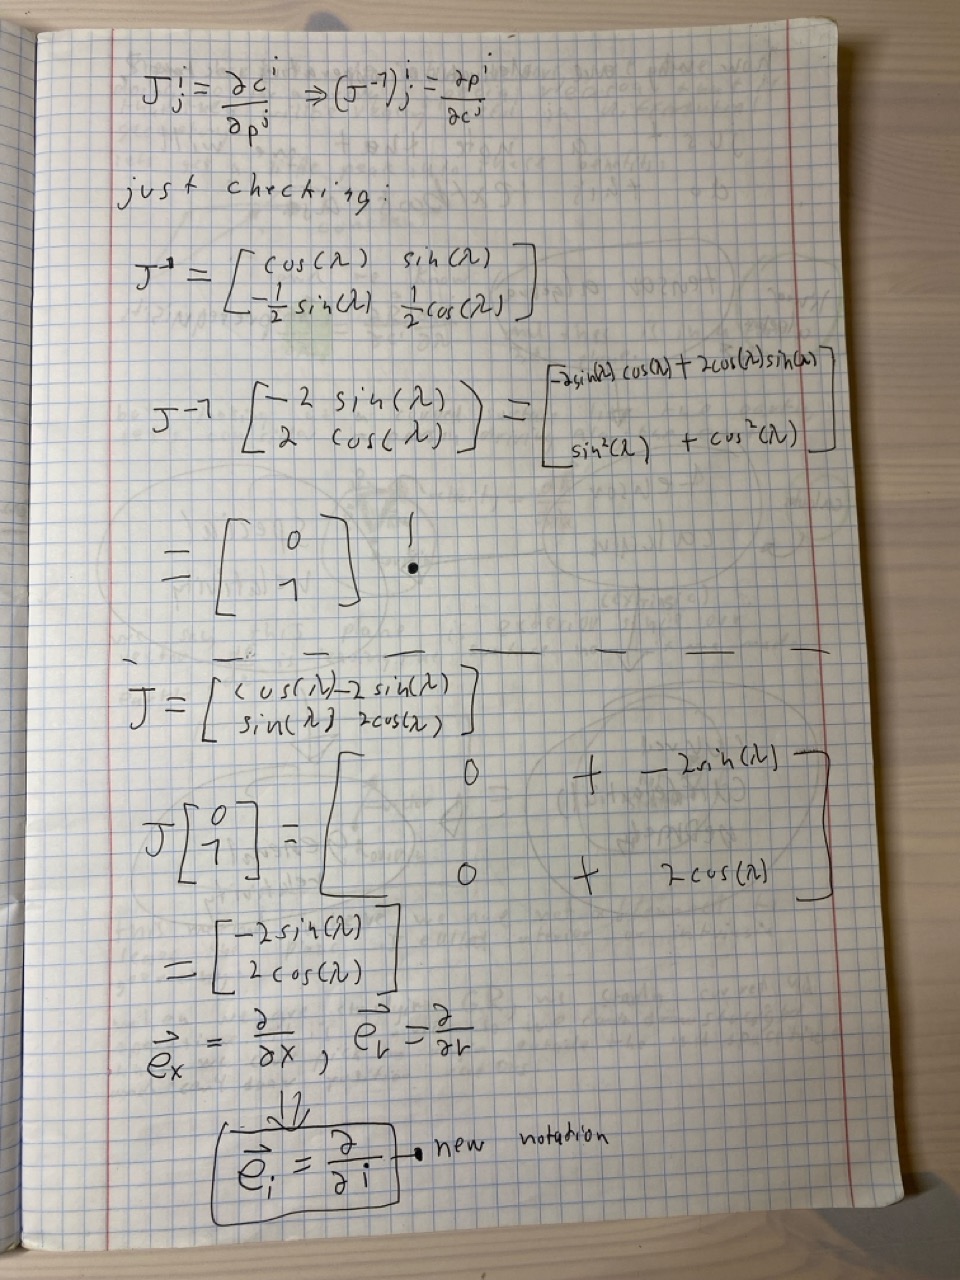 J^i_j = ∂c^i/∂p^j ⇒ (J^-1)^i_j = ∂p^i/∂c^j
just checking:
J^-1 = [cos(λ) sin(λ)
-1/2 sin(λ) 1/2 cos(λ)]
J^-1 [-2 sin(λ)
2 cos(λ)] = [-2sin(λ) cos(λ) + 2cos(λ)sin(λ)
sin²(λ) + cos²(λ)]
= [0
1] !
J = [cos(λ) -2 sin(λ)
sin(λ) 2cos(λ)]
J [0
1] = [0 + -2sin(λ)
0 + 2cos(λ)]
= [-2sin(λ)
2cos(λ)]
e⃗_x = ∂/∂x, e⃗_r = ∂/∂r
⇓
e⃗_i = ∂/∂i new notation